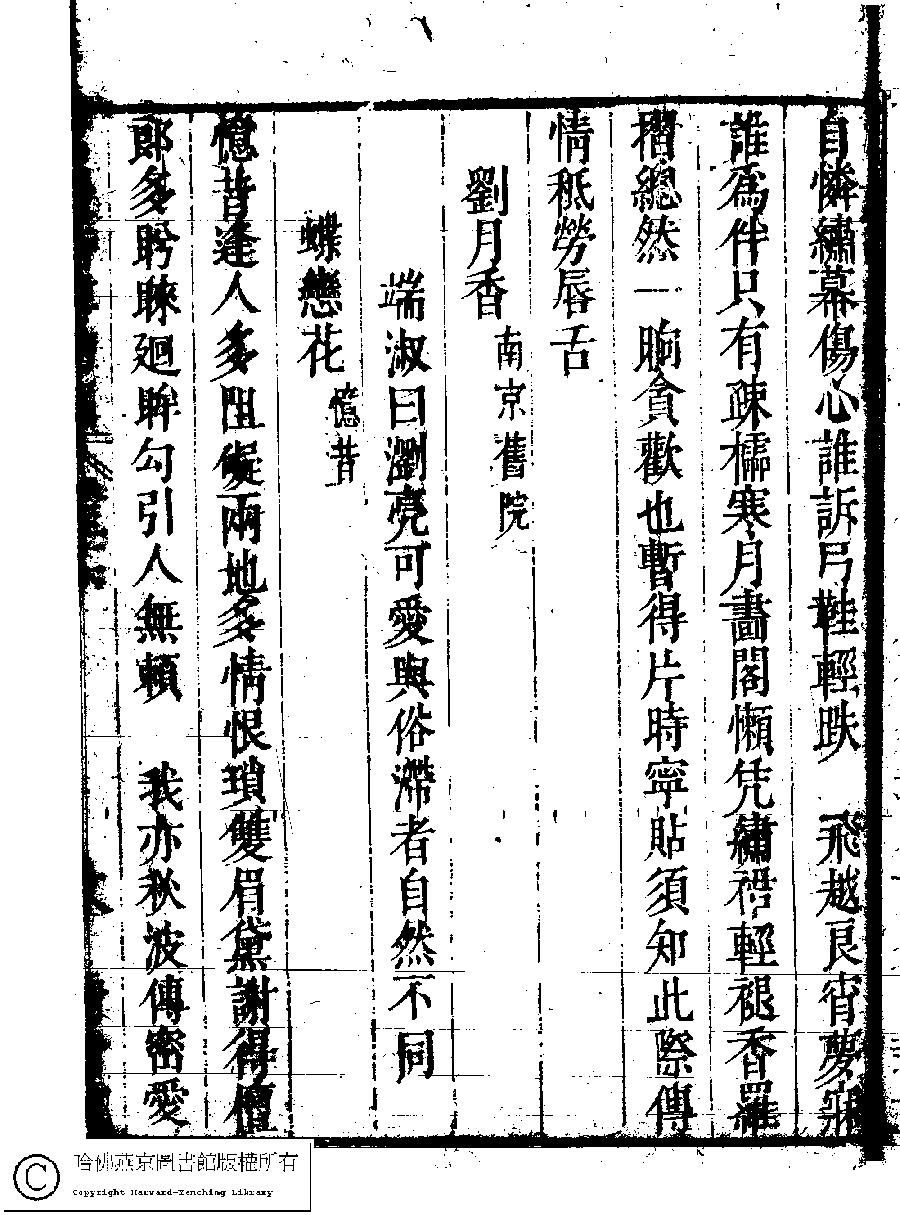 自憐繡幕傷心誰訴弓鞋輕趺　飛越良宵夢寐
誰爲伴只有疎櫺寒月畵閣懶凭繡裙輕褪香羅
褶總然一晌貪歡也暫得片時寧貼須知此際傳
情秪勞唇舌
劉月香 南京舊院
端淑曰瀏亮可愛與俗滯者自然不同
蝶戀花 憶昔
憶昔逢人多阻礙兩地多情恨瑣雙眉黛謝得檀
郎多盻睞廻眸勾引人無賴　我亦秋波傳密愛
哈佛燕京圖書館版權所有
Copyright Harvard-Yenching Library